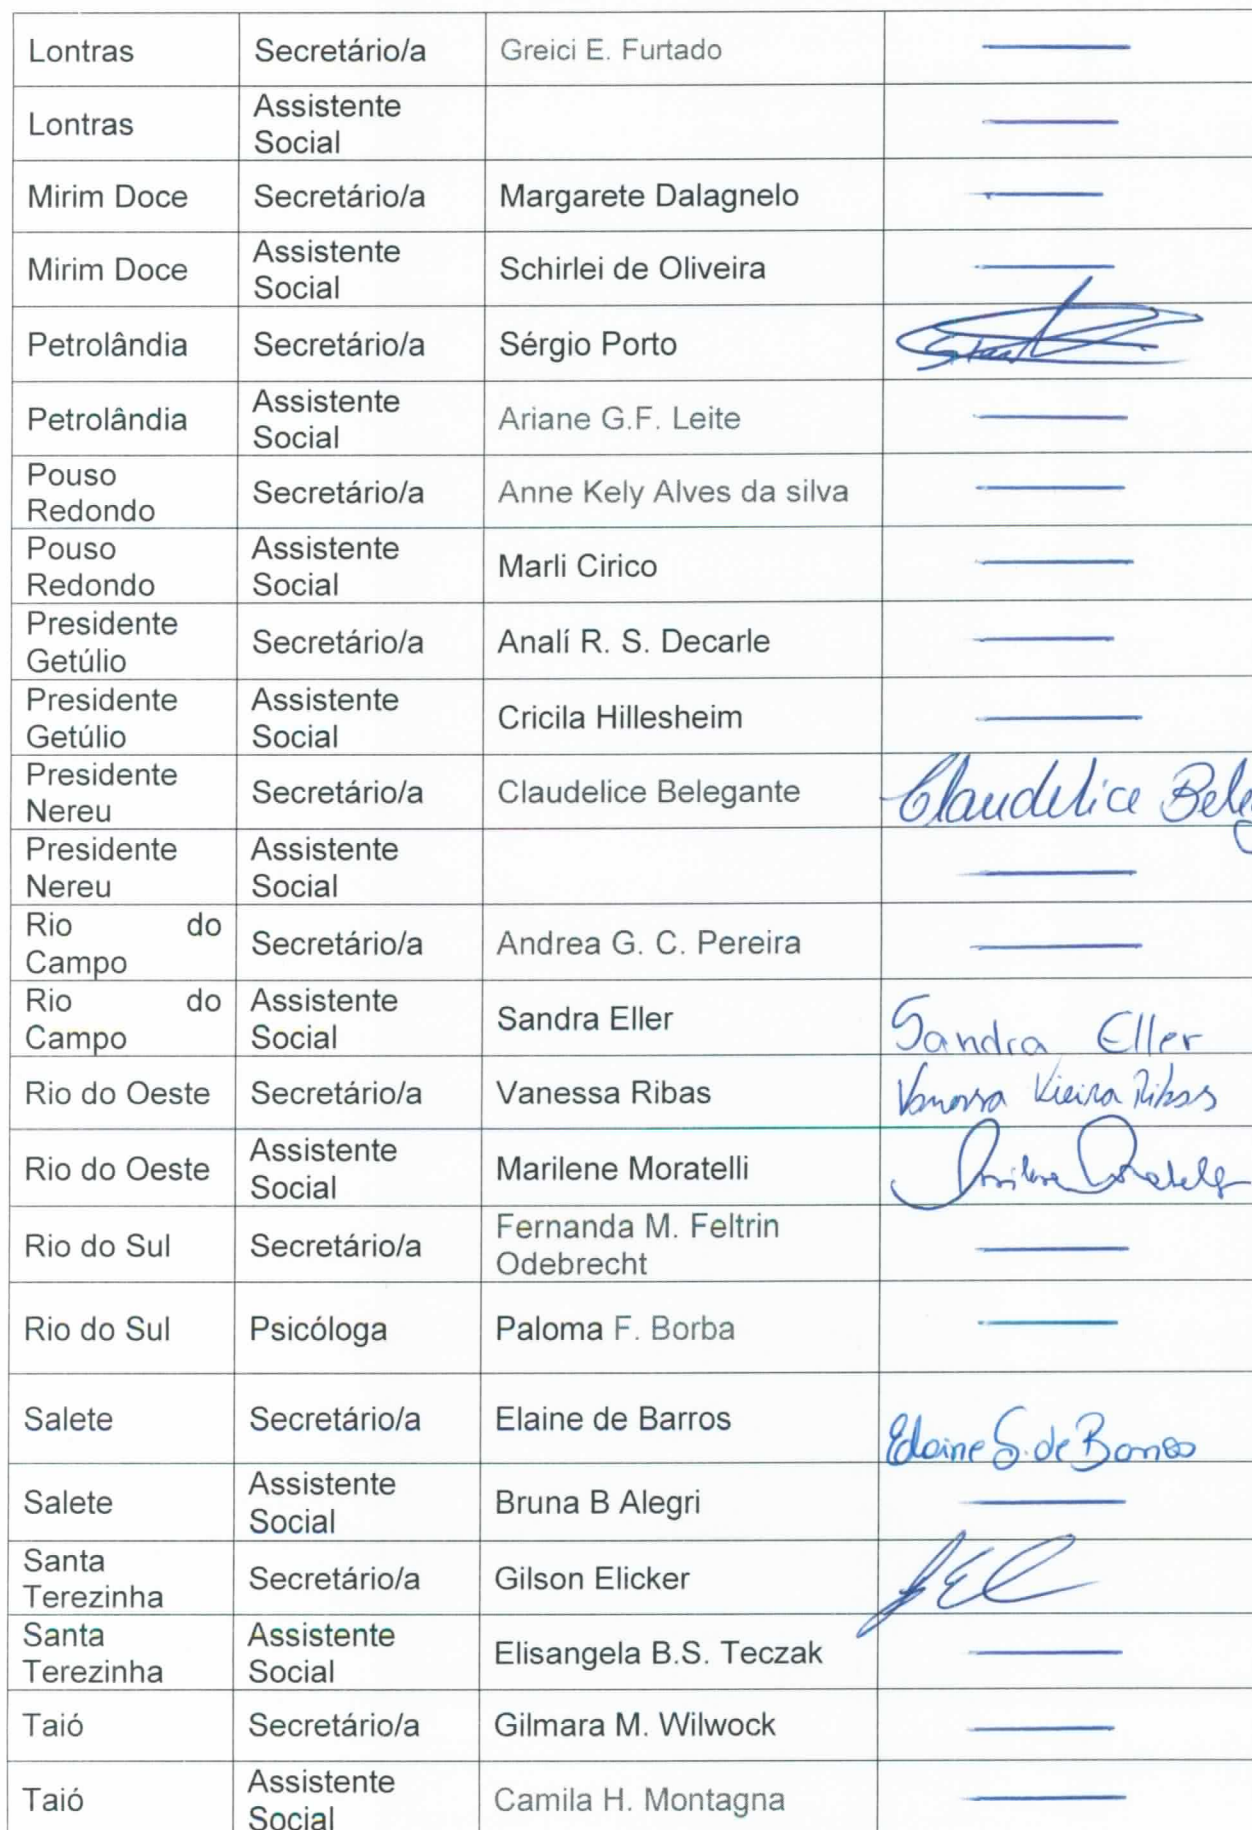 Lontras Secretário/a Greici E. Furtado
Lontras Assistente Social
Mirim Doce Secretário/a Margarete Dalagnelo
Mirim Doce Assistente Social Schirlei de Oliveira
Petrolândia Secretário/a Sérgio Porto
Petrolândia Assistente Social Ariane G.F. Leite
Pouso Redondo Secretário/a Anne Kely Alves da silva
Pouso Redondo Assistente Social Marli Cirico
Presidente Getúlio Secretário/a Analí R. S. Decarle
Presidente Getúlio Assistente Social Cricila Hillesheim
Presidente Nereu Secretário/a Claudelice Belegante Claudelice
Presidente Nereu Assistente Social
Rio do Campo Secretário/a Andrea G. C. Pereira
Rio do Campo Assistente Social Sandra Eller Sandra Eller
Rio do Oeste Secretário/a Vanessa Ribas Vanessa Vieira Ribas
Rio do Oeste Assistente Social Marilene Moratelli
Rio do Sul Secretário/a Fernanda M. Feltrin Odebrecht
Rio do Sul Psicóloga Paloma F. Borba
Salete Secretário/a Elaine de Barros Elaine S. de Barros
Salete Assistente Social Bruna B Alegri
Santa Terezinha Secretário/a Gilson Elicker
Santa Terezinha Assistente Social Elisangela B.S. Teczak
Taió Secretário/a Gilmara M. Wilwock
Taió Assistente Social Camila H. Montagna